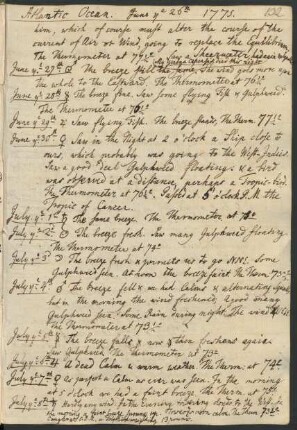 Atlantic Ocean. June ye 26th 1775.
tion, which of course must alter the course of the
current of Air or Wind, going to replace the Equilibrium.
The Thermometer at 77½°
June ye 27th The breeze fell the more, the wind got more upon
the whole to the Eastward. The Thermometer at 76½°
June ye 28th The breeze fine. Saw some flying Fish & Gulphweed.
The Thermometer at 76½°
June ye 29th Saw flying Fish. The breeze Faint, the Therm. 77½°
June ye 30th Saw in the Night at 2 o'clock a Ship close to
ours, which probably was going to the West-Indies.
Saw a great deal of Gulphweed floating, & a bird
was observed at a distance, perhaps a Tropic-bird.
The Thermometer at 76½° Past at 5 o'clock P.M. the
Tropic of Cancer.
July ye 1st The same breeze. The Thermometer at 75°
July ye 2d The breeze fresh. Saw many Gulphweed floating
The Thermometer at 74°
July ye 3d The breeze fresh & permits us to go NNE. Some
Gulphweed seen. At noon the breeze faint the Therm. 73½°
July ye 4th The breeze fell & we had Calms & alternatively again
had in the morning the wind freshened, a good many
Gulphweed seen. Some Rain during night. The wind
The Thermometer at 73½°
July ye 5th The breeze falls & now & then freshens again
saw Gulphweed. The Thermometer at 73°
July ye 6th A dead Calm & warm weather the Therm. at 74°
July ye 7th As perfect a Calm as ever was seen. In the morning
at 5 o'clock we had a faint breeze the Therm. at 75°
July ye 8th Hardly any wind. In the Evening